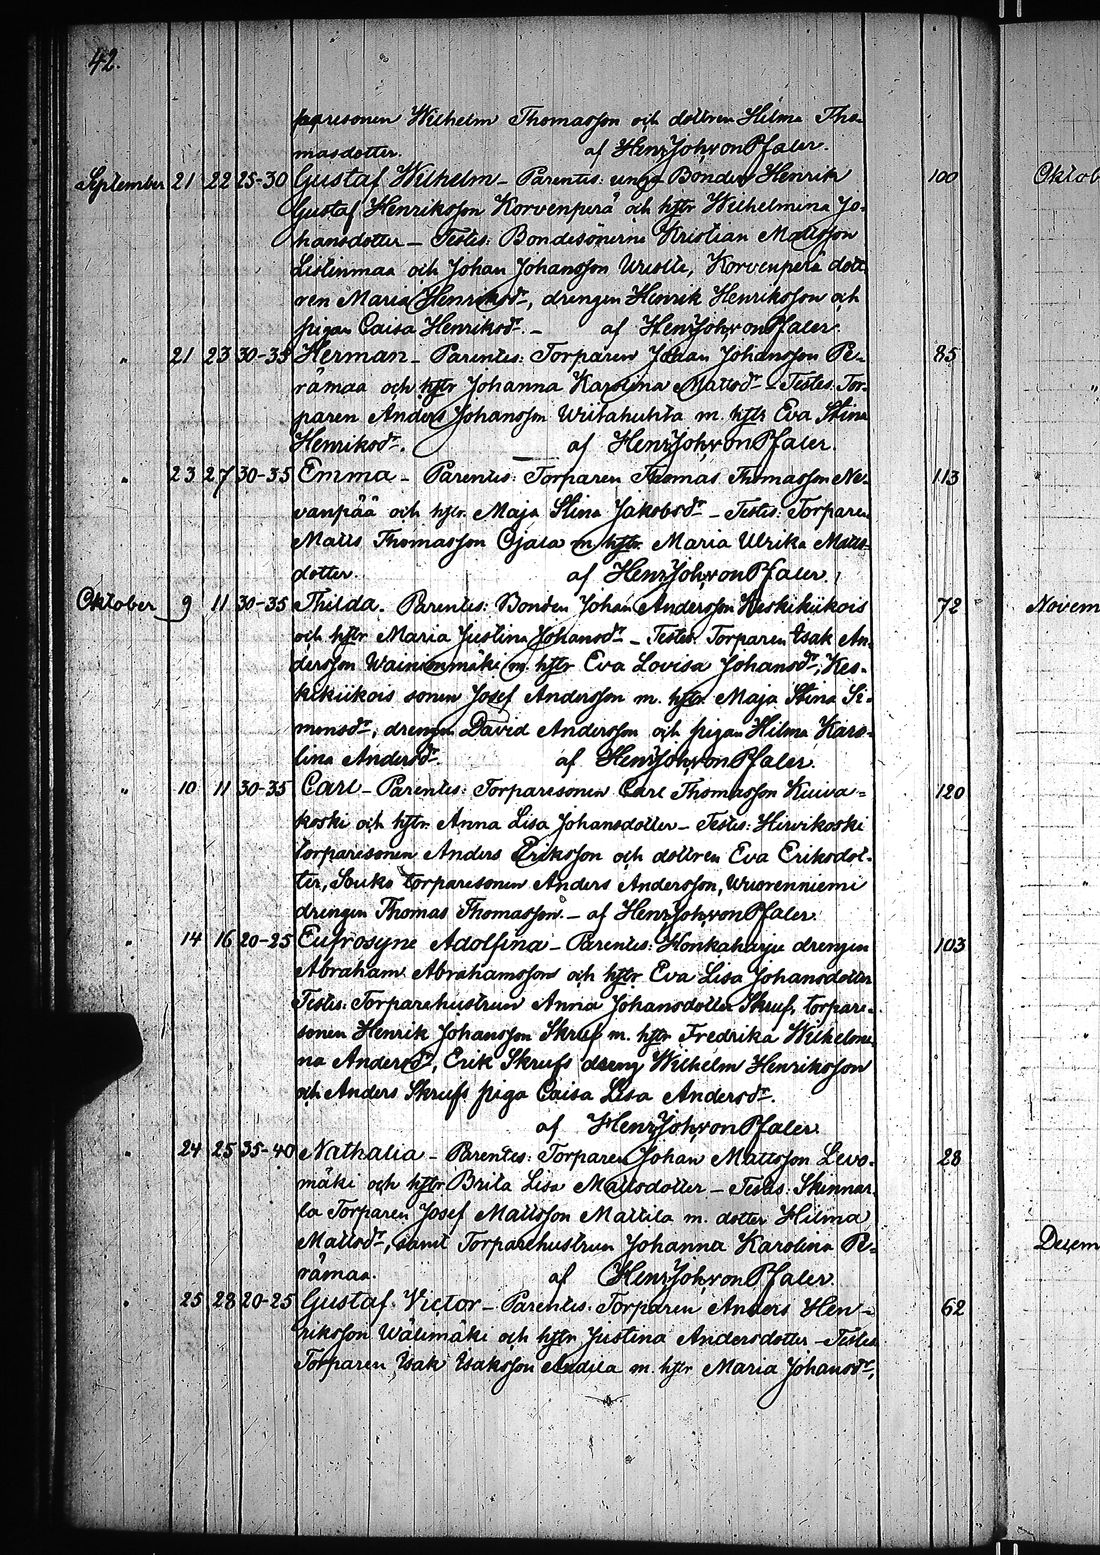 42.
paresonen Wilhelm Thomasson och dottren Hilma Tho-
masdotter. af HenrJohvonPfaler.
September 21 22 25-30 Gustaf Wilhelm - Parentes: unga Bonden Henrik 100 Oktob
Gustaf Henriksson Korvenperä och hstr Wilhelmina Jo-
hansdotter - Testes: Bondesönerne Kristian Mattsson
Listinmaa och Johan Johansson Uristle, Korvenperä dott-
ren Maria Henriksdr, drengen Henrik Henriksson och
pigan Caisa Henriksdr. - af HenrJohvonPfaler.
" 21 23 30-35 Herman - Parentes: Torparen Johan Johansson Pe- 85
rämaa och hstr Johanna Karolina Mattsdr - Testes: Tor-
paren Anders Johansson Wiitahuhta m. hstr Eva Stina
Henriksdr. af HenrJohvonPfaler.
" 23 27 30-35 Emma - Parentes: Torparen Thomas Thomasson Ne- 113
vanpää och hstr. Maja Stina Jakobsdr - Testes: Torparen
Matts Thomasson Ojala m. hstr. Maria Ulrika Matts-
dotter. af HenrJohvonPfaler.
Oktober 9 11 30-35 Thilda. Parentes: Bonden Johan Andersson Keskikiikois 72 Novem
och hstr Maria Justina Johansdr - Testes: Torparen Isak An-
dersson Wainionmäki m. hstr Eva Lovisa Johansdr, Kes-
kikiikois sonen Josef Andersson m. hstr. Maja Stina Si-
monsdr, drengen David Andersson och pigan Hilma Karo-
lina Andersdr. af HenrJohvonPfaler.
" 10 11 30-35 Carl - Parentes: Torparesonen Carl Thomasson Kuiva- 120
koski och hstr. Anna Lisa Johansdotter - Testes: Hirvikoski
torparesonen Anders Eriksson och dottren Eva Eriksdot-
ter, Souko torparesonen Anders Andersson, Wuorenniemi
drengen Thomas Thomasson. - af HenrJohvonPfaler.
" 14 16 20-25 Eufrosyne Adolfina - Parentes: Honkaharju drengen 103
Abraham Abrahamsson och hstr Eva Lisa Johansdotter
Testes: Torparehustrun Anna Johansdotter Skruf, torpare-
sonen Henrik Johansson Skruf m. hstr Fredrika Wilhelmi-
na Andersdr, Erik Skrufs dreng Wilhelm Henriksson
och Anders Skrufs piga Caisa Lisa Andersdr.
af HenrJohvonPfaler
" 24 25 35-40 Nathalia - Parentes: Torparen Johan Mattsson Levo- 28
mäki och hstr Brita Lisa Mattsdotter - Testes: Skinnar-
la Torparen Josef Mattsson Mattila m. dotter Hilma
Mattsdr, samt Torparehustrun Johanna Karolina Pe- Decem
rämaa. af HenrJohvonPfaler.
" 25 28 20-25 Gustaf Victor - Parentes: Torparen Anders Hen- 62
riksson Wälimäki och hstr Justina Andersdotter - Testes
Torparen Isak Isaksson Andila m. hstr Maria Johansdr,